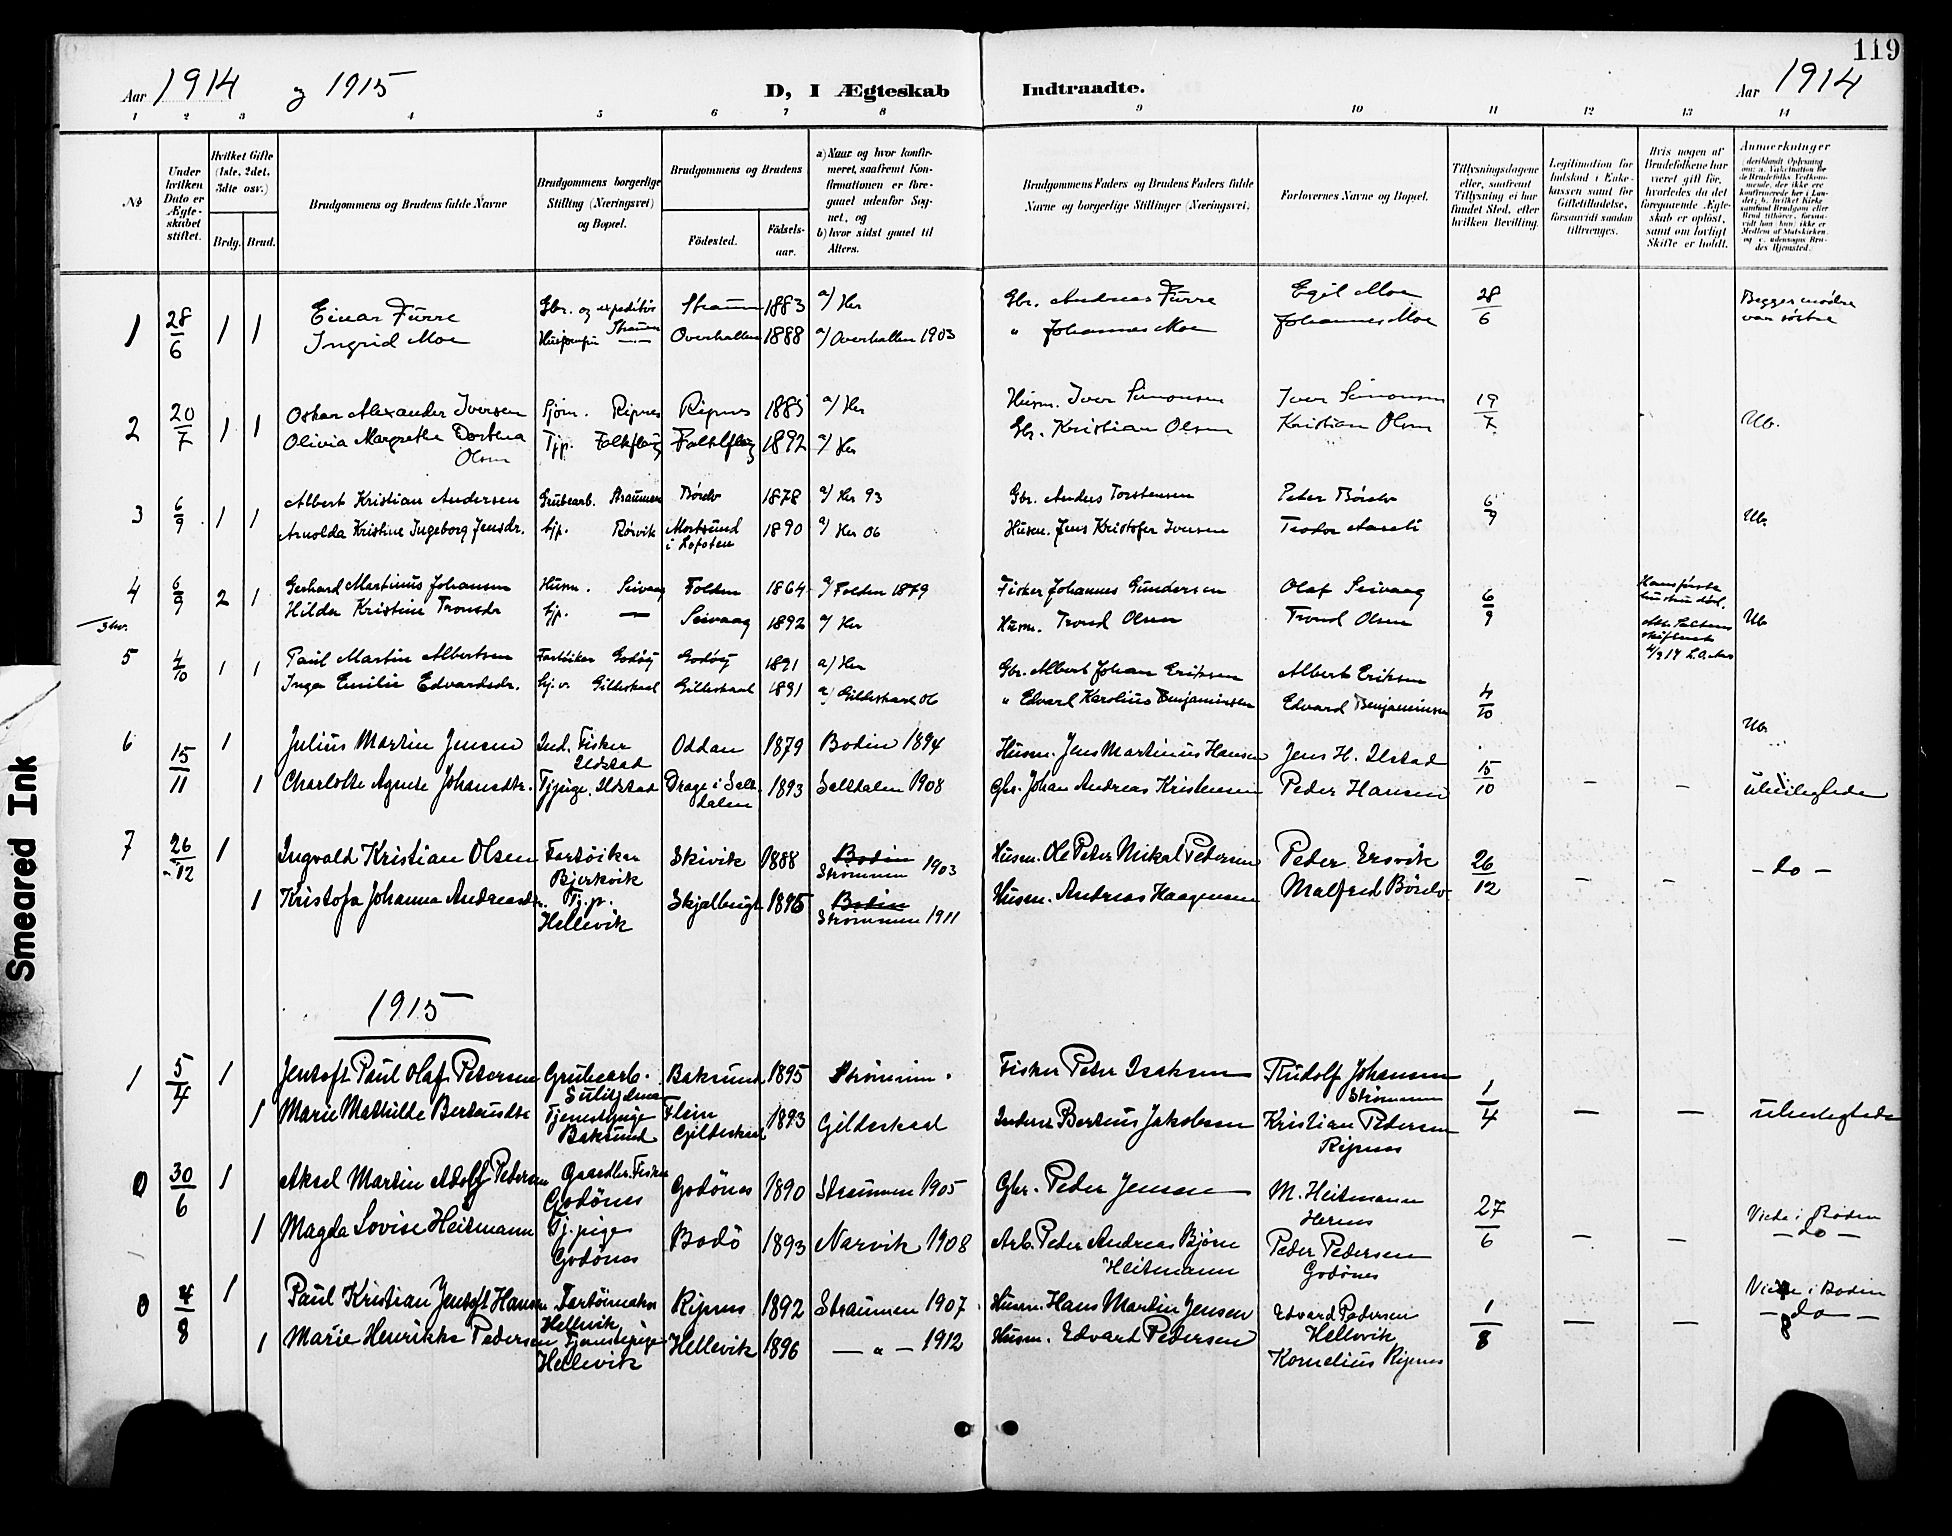 119
Aar 1914 og 1915 D, I Ægteskab Indtraadte. Aar 1914
1 2 3 4 5 6 7 8 9 10 11 12 13 14
No
Under hvilken Dato er Ægteskabet stiftet.
Hvilket Gifte (1ste, 2det, 3die osv.)
Brdg. Brud.
Brudgommens og Brudens fulde Navne
Brudgommens borgerlige Stilling (Næringsvei) og Bopæl.
Brudgommens og Brudens
Fødested.
Fødsels-aar.
a) Naar og hvor konfirmeret, saafremt Konfirmationen er foregaaet udenfor Sognet, og
b) hvor sidst gaaet til Alters.
Brudgommens Faders og Brudens Faders fulde Navne og borgerlige Stillinger (Næringsvei).
Forlovernes Navne og Bopæl.
Tillysningsdagene eller, saafremt Tillysning ei har fundet Sted, efter hvilken Bevilling.
Legitimation for Indskud i Enkekassen samt for Giftetilladelse, forsaavidt saadan tiltrænges.
Hvis nogen af Brudefolkene har været gift før, hvorledes da det foregaaende Ægteskab er opløst, samt om lovligt Skifte er holdt.
Anmerkninger
1 28/6 1 Einar Furre Gbr. og expeditør Straum 1883 a/ Her Gbr. Andreas Furre Egil Moe 28/6 Begges mødre
1 Ingrid Moe Overhallen 1888 a/ Overhallen 1903 " Johannes Moe Johannes Moe var søstre
2 20/7 1 Oskar Alexander Iversen Sjøm. Ripnes Ripnes 1885 a/ Her Husm. Iver Simonsen Iver Simonsen 19/7 Ub.
1 Olivia Margrethe Dortena Olsen Tjp. 1892 a/ Her Gbr. Kristian Olsen Kristian Olsen
3 6/9 1 Albert Kristian Andersen Grubearb. Straumen 1878 a/ Her 93 Gbr. Anders Torstensen Peder 6/9
1 Arnolda Kristine Ingeborg Jensdr. tjp. Børvik Mortsund i Lofoten 1890 a/ Her 06 Husm. Jens Kristofer Iversen Ub.
4 6/9 2 Gerhard Martinus Johansen Husm. Seivaag Folden 1864 a/ Folden 1879 Fisker Johannes Gundersen Olaf Seivaag 6/9 Hans første hustru død.
1 Hilda Kristine Tronsdr. tjp. — Seivaag 1892 a/ Her Husm. Trond Olsen Trond Olsen Ub
5 4/10 1 Paul Martin Albertsen Fartøieier Godøy Godøy 1891 a/ Her Gbr. Albert Johan Eriksen Albert Eriksen
1 Inga Emilie Edvardsdr. Gildeskaal Gildeskaal 1891 a/ Gildeskaal 06 " Edvard Karolius Benjaminsen Edvard Benjaminsen 4/10 Ub.
6 15/11 1 Julius Martin Jensen Ind. Fisker Ildstad Oddan 1879 Bodin 1894 Husm. Jens Martinus Hansen Jens H. Ilstad 15/10
1 Charlotte Agnete Johansdtr. Tjpige. Ildstad Drage i Saltdalen 1893 Saltdalen 1908 Gbr. Johan Andreas Kristensen Peder Hansen — — ubeslegtede
7 26/12 1 Ingvald Kristian Olsen Fartøieier Bjerkvik Skivik 1888 Bodin Strømmen 1903 Husm. Ole Peter Mikal Pedersen Peder Ersvik 26/12 — — - do -
1 Kristofa Johanna Andreasdr. Tj.p. Hellevik 1895 Bodin Strømmen 1911 Husm. Andreas Haagensen
1915
1 5/4 1 Jentoft Paul Olaf Petersen Grubearb. Sulitjelma Baksund 1895 Strømmen. Fisker Peter Isaksen Rudolf Johansen Strømmen 1/4
1 Marie Mathilde Tjenestepige Baksund Flein Gildeskaal 1893 Gildeskaal Inderst Berteus Jakobsen Kristian Pedersen Ripnes — — ubeslegtede
0 30/6 1 Aksel Martin Adolf Pedersen Gaardbr. Fisker Godönes Godönes 1890 Straumen 1905 Gbr. Peder Jensen M. Heitmann Hernes 27/6 Viede i Bodin
1 Magda Lovise Heitmann Tj. pige Godönes Bodö 1893 Narvik 1908 Arb. Peder Andreas Bjørn Heitmann Peder Pedersen Godönes — — - do -
0 4/8 1 Paul Kristian Jentoft Hansen Hellevik Ripnes 1892 Straumen 1907 Husm. Hans Martin Jensen Edvard Pedersen Hellevik 1/8 Viede i Bodin
1 Marie Henrikke Pedersen Tjenestepige Hellevik Hellevik 1896 — " — 1912 Husm. Edvard Pedersen Kornelius Ripnes — — - do -
Smeared Ink